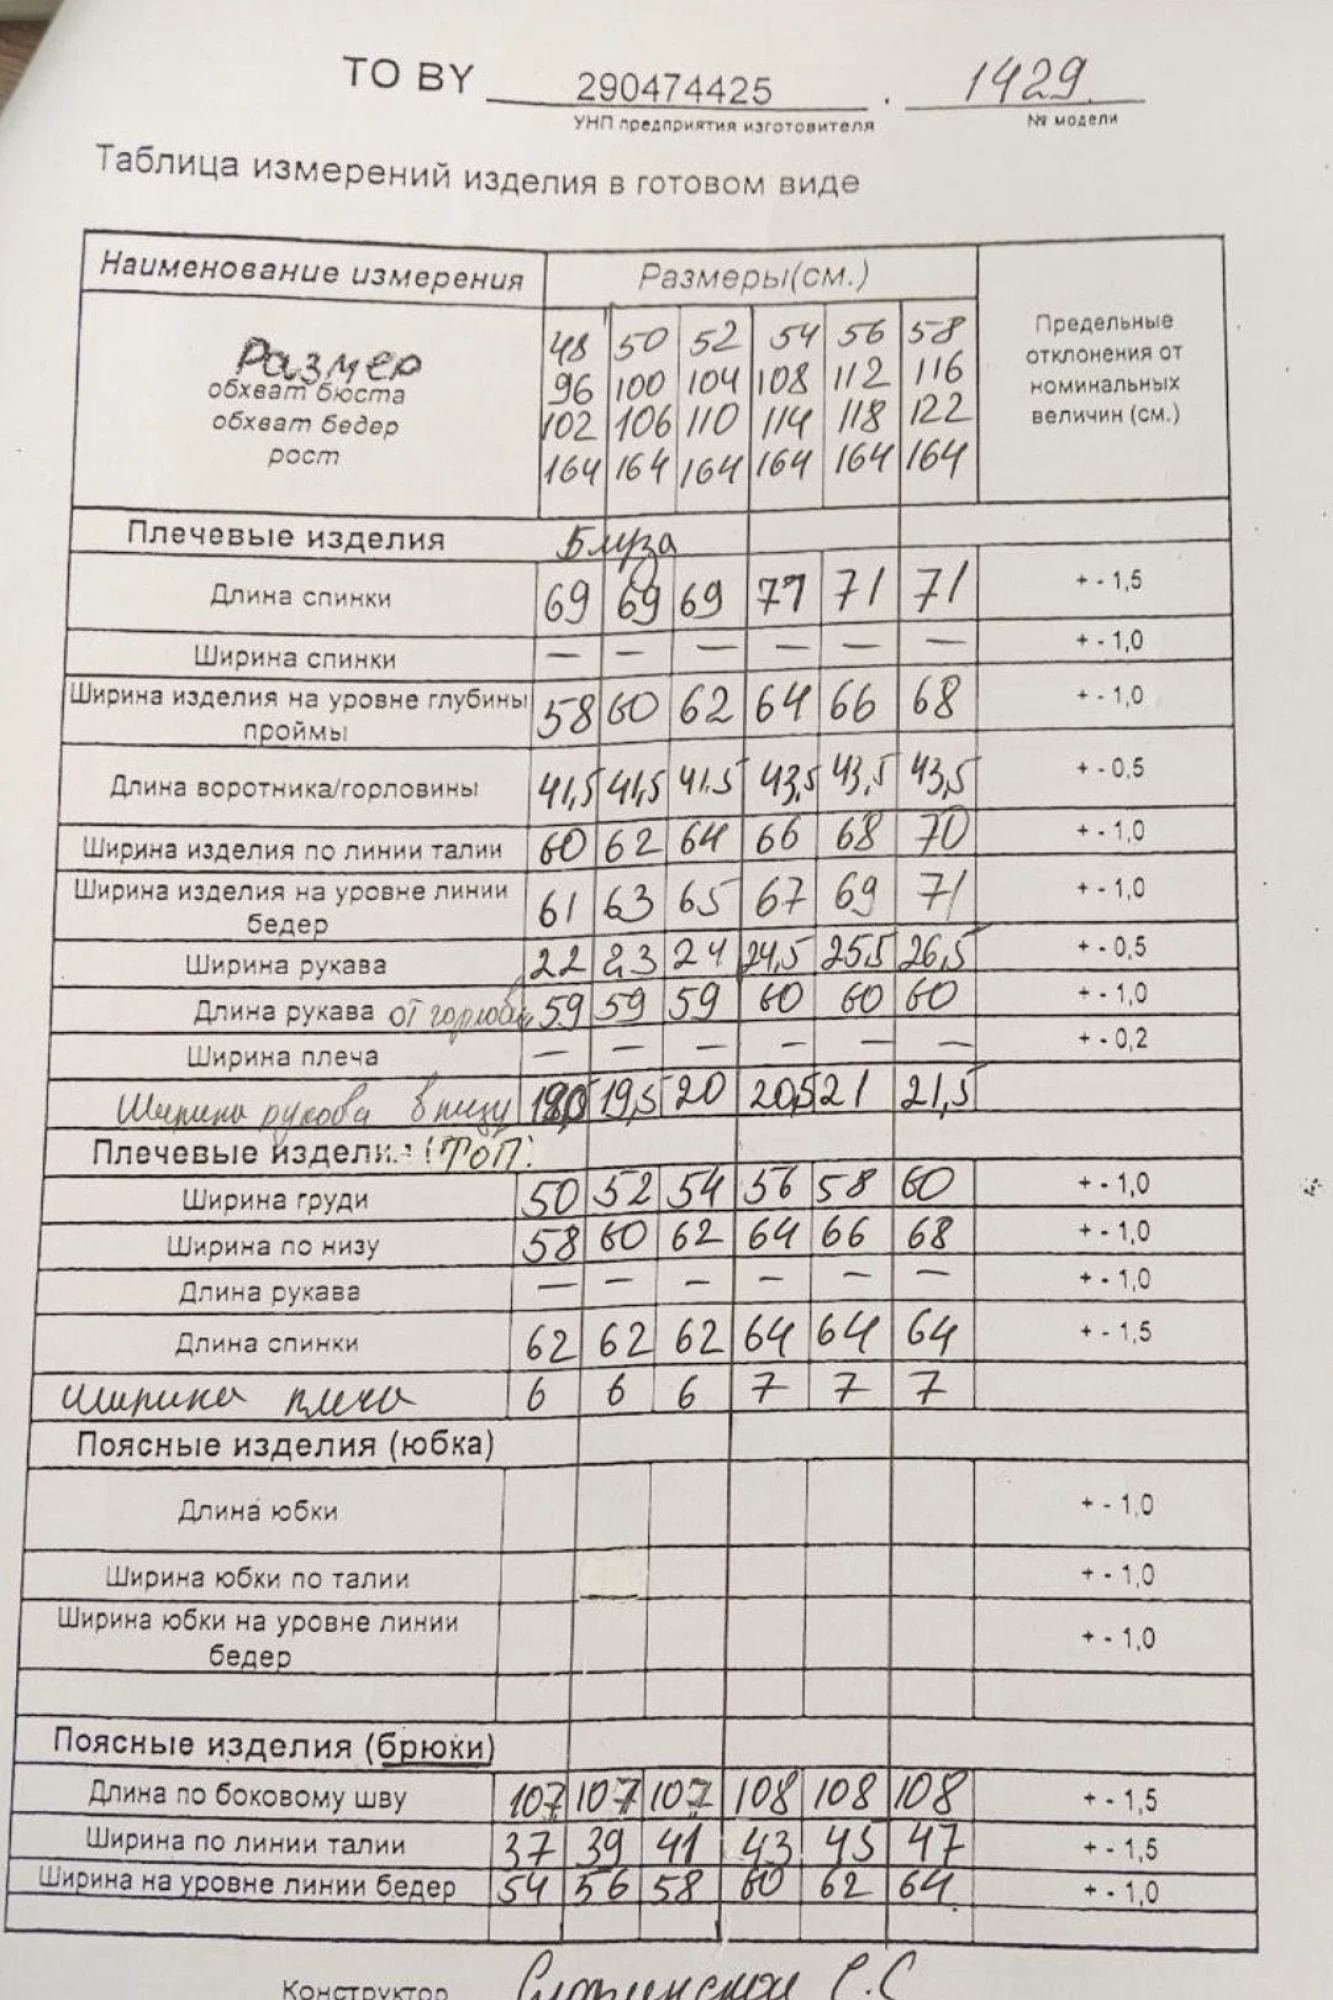 TO BY 290474425 . 1429.
УНП предприятия изготовителя № модели
Таблица измерений изделия в готовом виде
Наименование измерения Размеры(см.) Предельные отклонения от номинальных величин (см.)
Размер 48 50 52 54 56 58
обхват бюста 96 100 104 108 112 116
обхват бедер 102 106 110 114 118 122
рост 164 164 164 164 164 164
Плечевые изделия Блуза
Длина спинки 69 69 69 71 71 71 + - 1,5
Ширина спинки — — — — — — + - 1,0
Ширина изделия на уровне глубины
проймы 58 60 62 64 66 68 + - 1,0
Длина воротника/горловины 41,5 41,5 41,5 43,5 43,5 43,5 + - 0,5
Ширина изделия по линии талии 60 62 64 66 68 70 + - 1,0
Ширина изделия на уровне линии
бедер 61 63 65 67 69 71 + - 1,0
Ширина рукава 22 23 24 24,5 25,5 26,5 + - 0,5
Длина рукава от 59 59 59 60 60 60 + - 1,0
Ширина плеча — — — — — — + - 0,2
Ширина рукова внизу 19,5 20 20,5 21 21,5
Плечевые издели (ТОП)
Ширина груди 50 52 54 56 58 60 + - 1,0
Ширина по низу 58 60 62 64 66 68 + - 1,0
Длина рукава — — — — — — + - 1,0
Длина спинки 62 62 62 64 64 64 + - 1,5
Ширина плеча 6 6 6 7 7 7
Поясные изделия (юбка)
Длина юбки + - 1,0
Ширина юбки по талии + - 1,0
Ширина юбки на уровне линии
бедер + - 1,0
Поясные изделия (брюки)
Длина по боковому шву 107 107 107 108 108 108 + - 1,5
Ширина по линии талии 37 39 41 43 45 47 + - 1,5
Ширина на уровне линии бедер 54 56 58 60 62 64 + - 1,0
Конструктор С.С